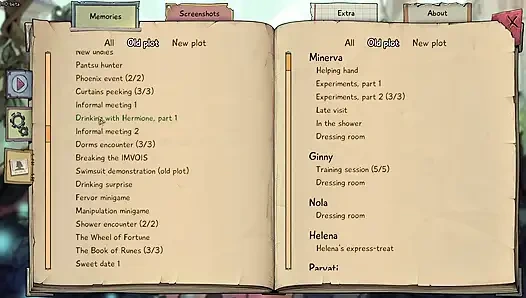 beta
Memories
Screenshots
Extra
About
All Old plot New plot
New undies
Pantsu hunter
Phoenix event (2/2)
Curtains peeking (3/3)
Informal meeting 1
Drinking with Hermione, part 1
Informal meeting 2
Dorms encounter (3/3)
Breaking the IMVOIS
Swimsuit demonstration (old plot)
Drinking surprise
Fervor minigame
Manipulation minigame
Shower encounter (2/2)
The Wheel of Fortune
The Book of Runes (3/3)
Sweet date 1
All Old plot New plot
Minerva
Helping hand
Experiments, part 1
Experiments, part 2 (3/3)
Late visit
In the shower
Dressing room
Ginny
Training session (5/5)
Dressing room
Nola
Dressing room
Helena
Helena's express-treat
Parvati